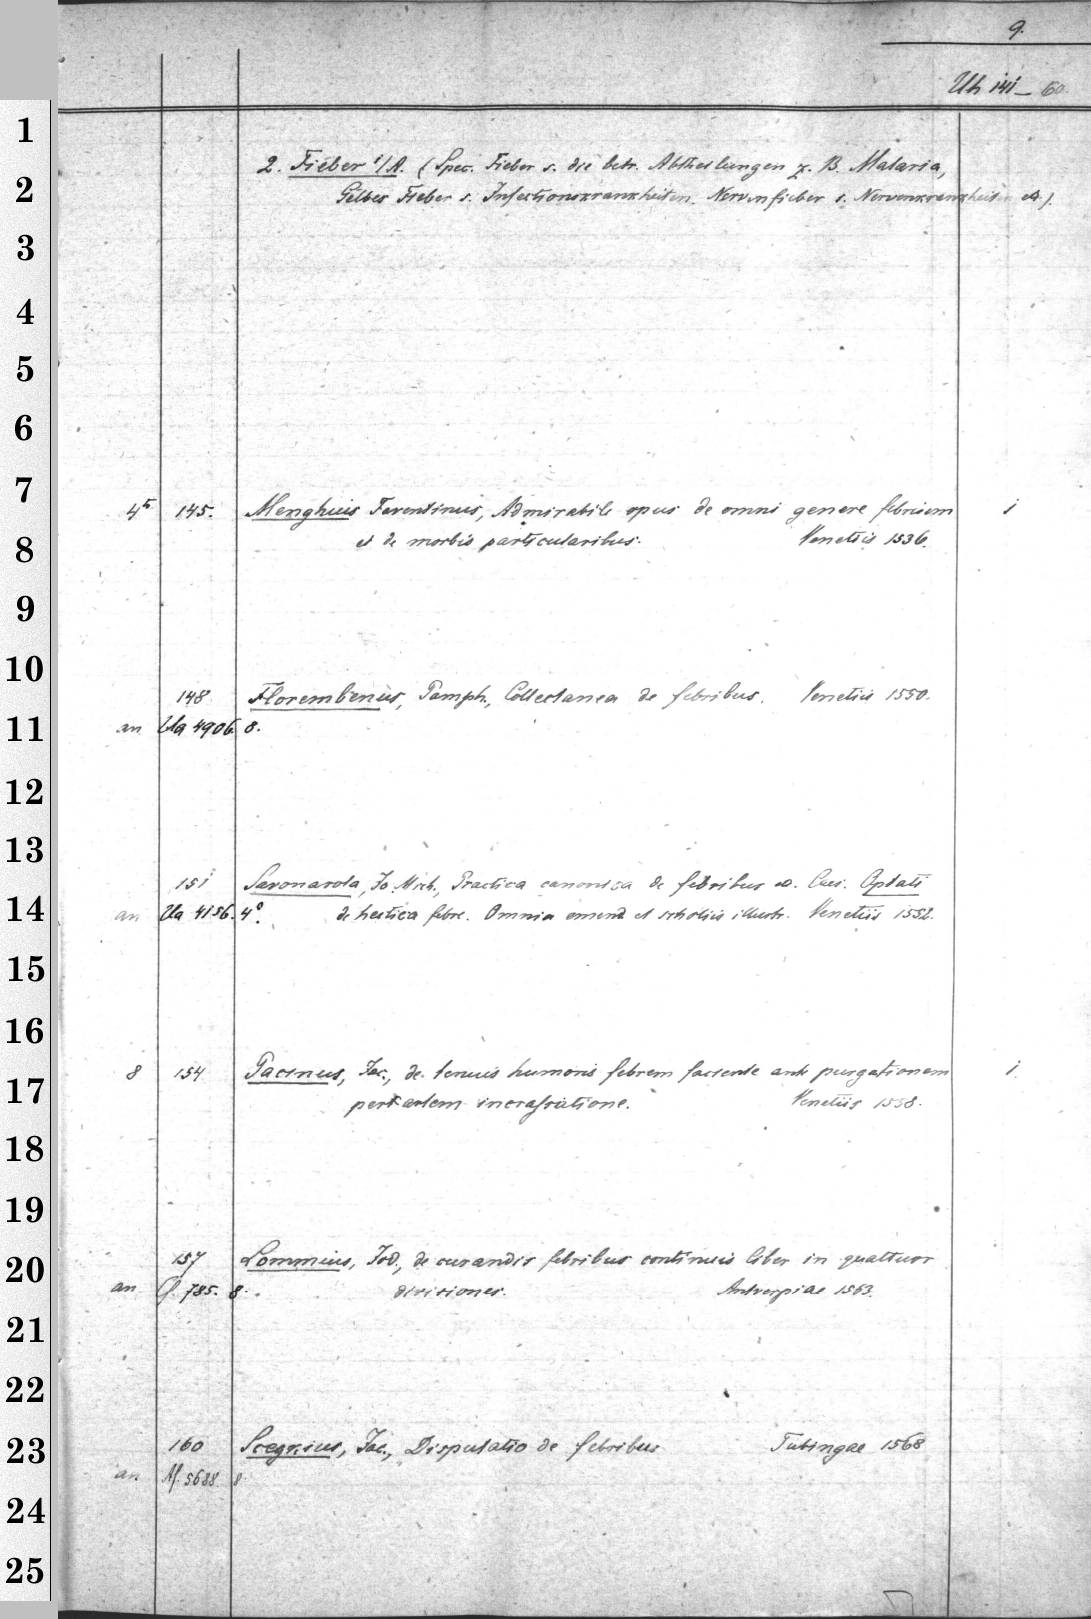 9.
Uh 141 — 60.
1
2. Fieber i/A. (Spec. Fieber s. die betr. Abtheilungen z. B. Malaria,
2
Gelbes Fieber s. Infectionskrankheiten. Nervenfieber s. Nervenkrankheiten etc.).
3
4
5
6
7
4° 145. Menghius Faventinus, Admirabile opus de omni genere febrium 1
8
et de morbis particularibus. Venetiis 1536.
9
10
148 Florembenus, Pamph., Collectanea de febribus. Venetiis 1550.
11
an Ua 4906. 8.
12
13
151 Savonarola, Jo. Mich., Practica canonica de febribus Caes. Optati
14
an Ua 4156. 4°. de hectica febre. Omnia emend. et scholiis illustr. Venetiis 1552.
15
16
8 154 Pacinus, Jac., de tenuis humoris febrem faciente ante purgationem 1.
17
per artem incrassatione. Venetiis 1558.
18
19
157 Lommius, Jod., de curandis febribus continuis liber in quattuor
20
an 785. 8. divisiones. Antverpiae 1563.
21
22
160 Scegkius, Jac., Disputatio de febribus Tubingae 1568
23
an Af. 5688 8.
24
25